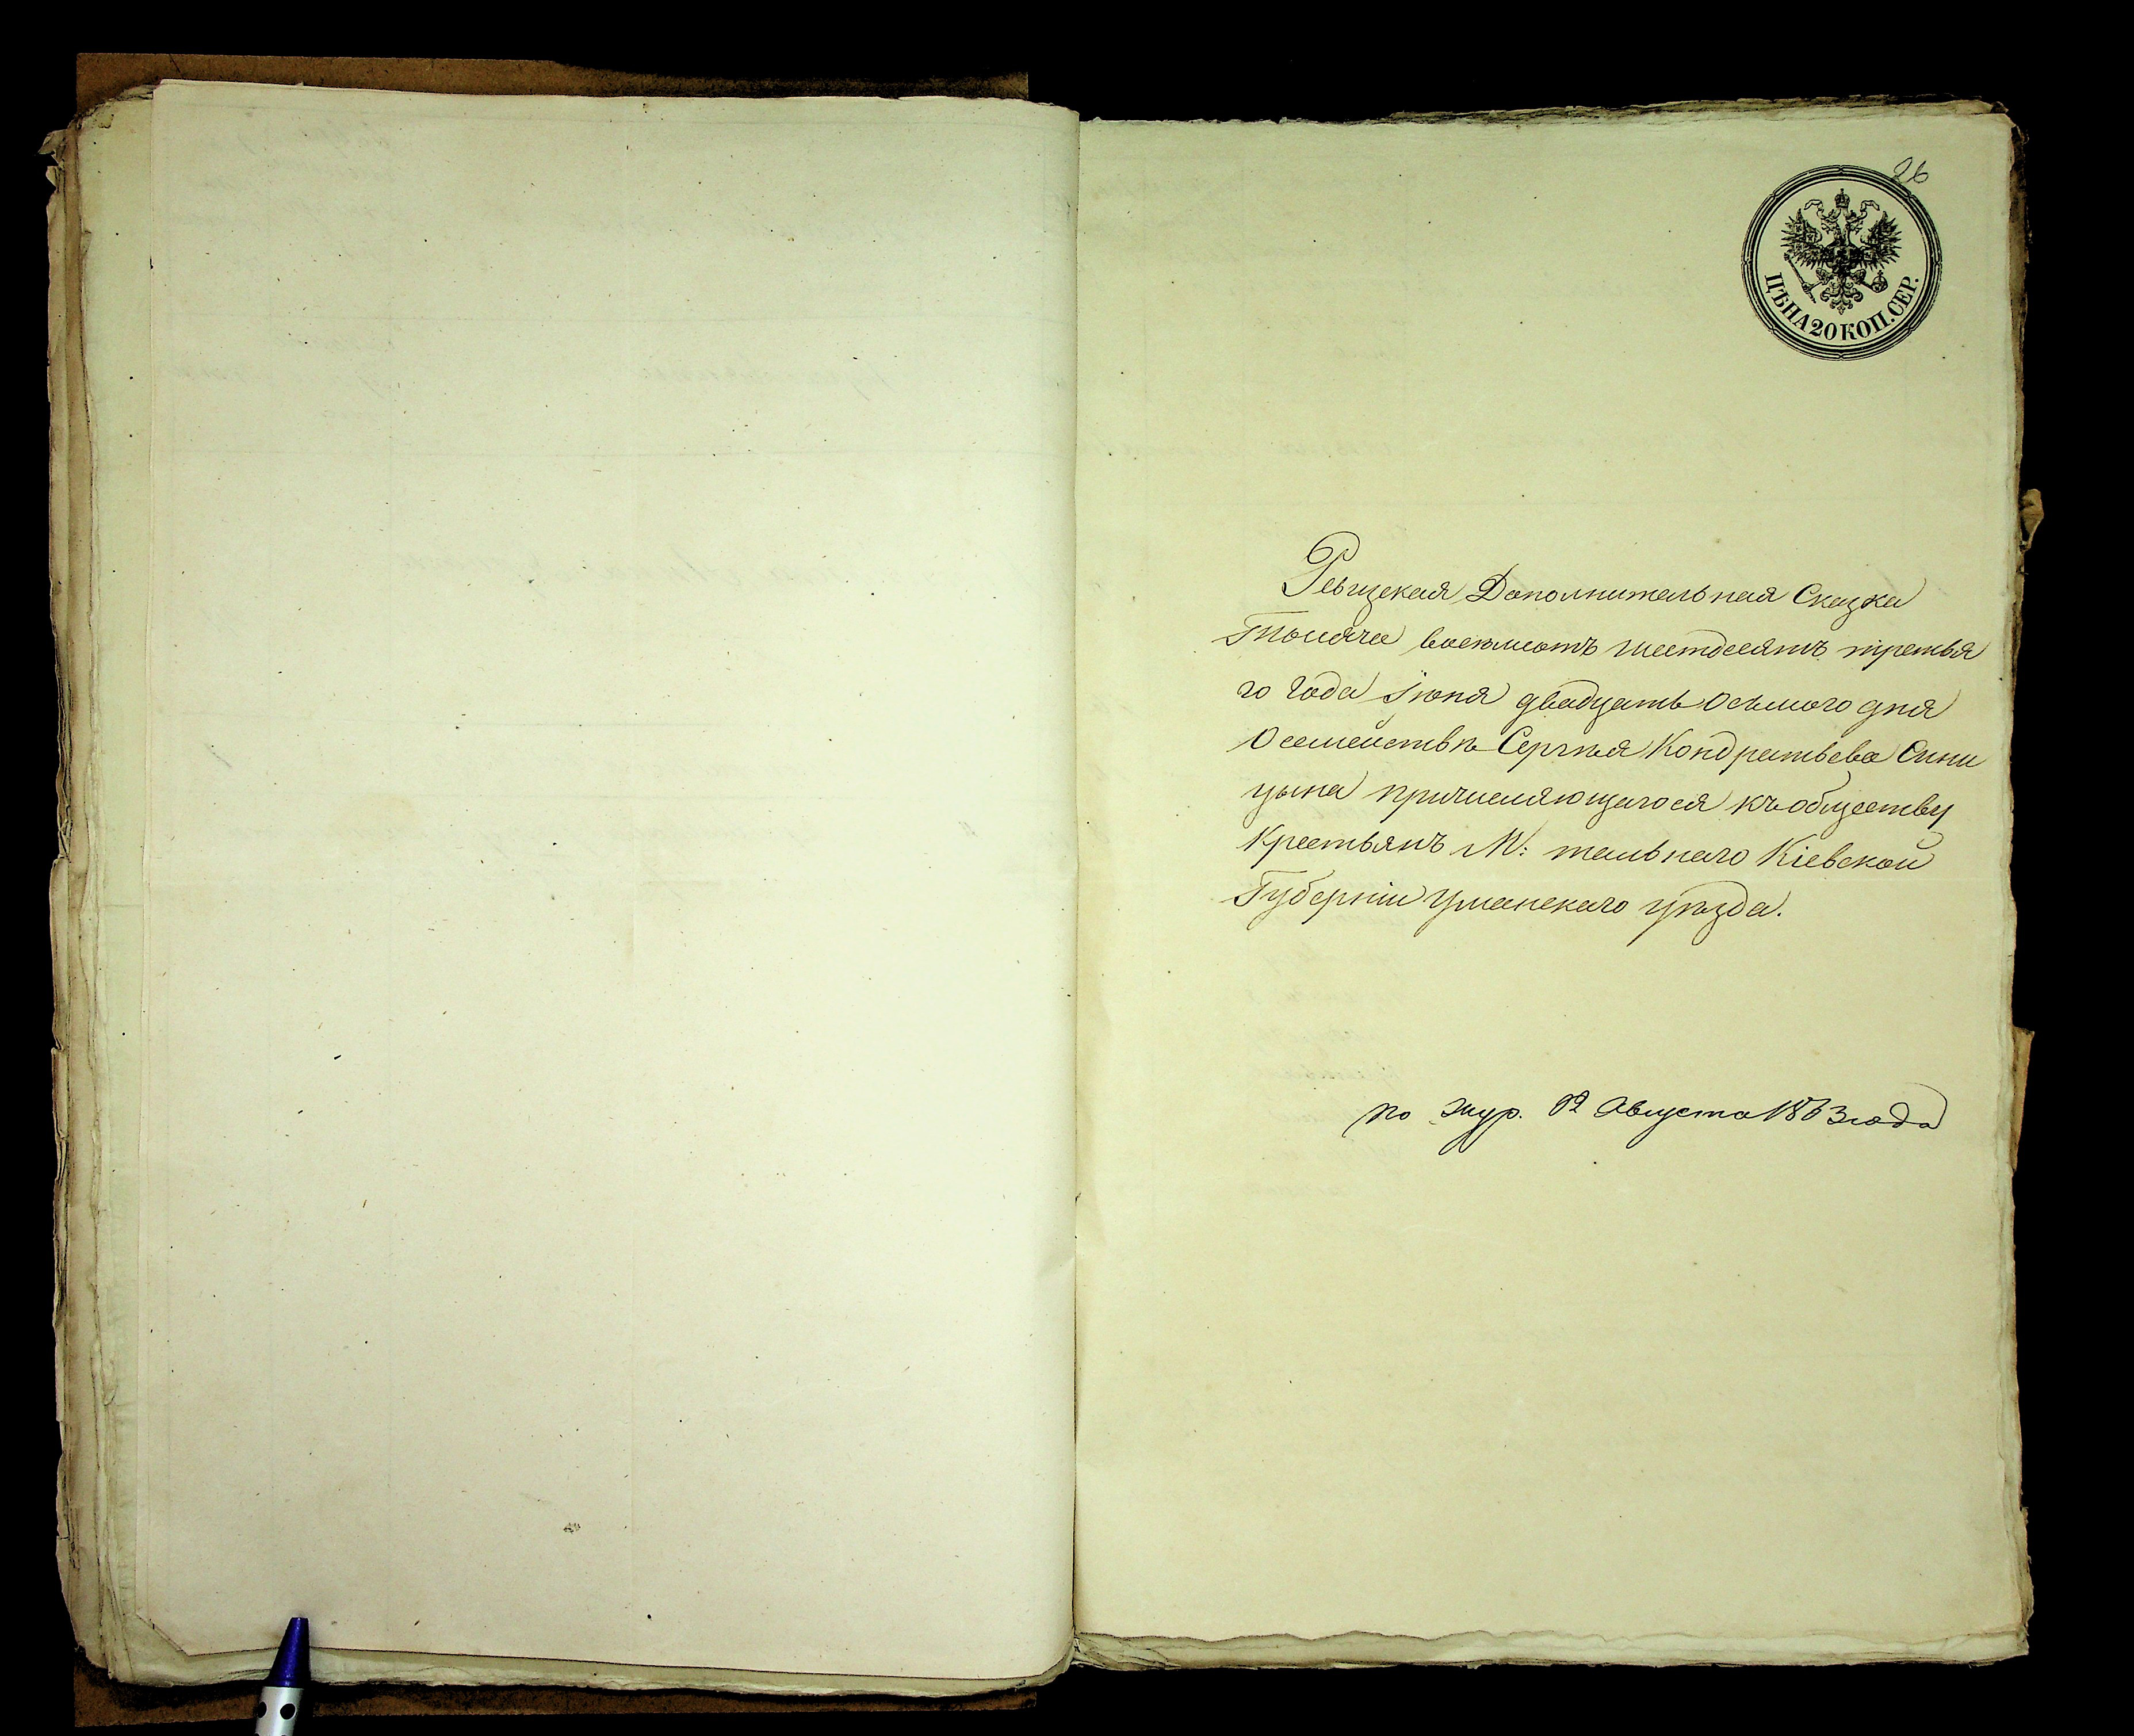 26
ЦѢНА 20 КОП. СЕР.
Ревизская Дополнительная Сказка
Тысяча восемьсотъ шестдесятъ третья
го Года Іюня двадцать Осьмого дня
О семействѣ Сергѣя Кондратьева Сини
цына причисляющагося къ обществу
Крестьянъ М: тальнаго Кіевской
Губерніи Уманскаго уѣзда.
по жур. 12 Августа 1863 года